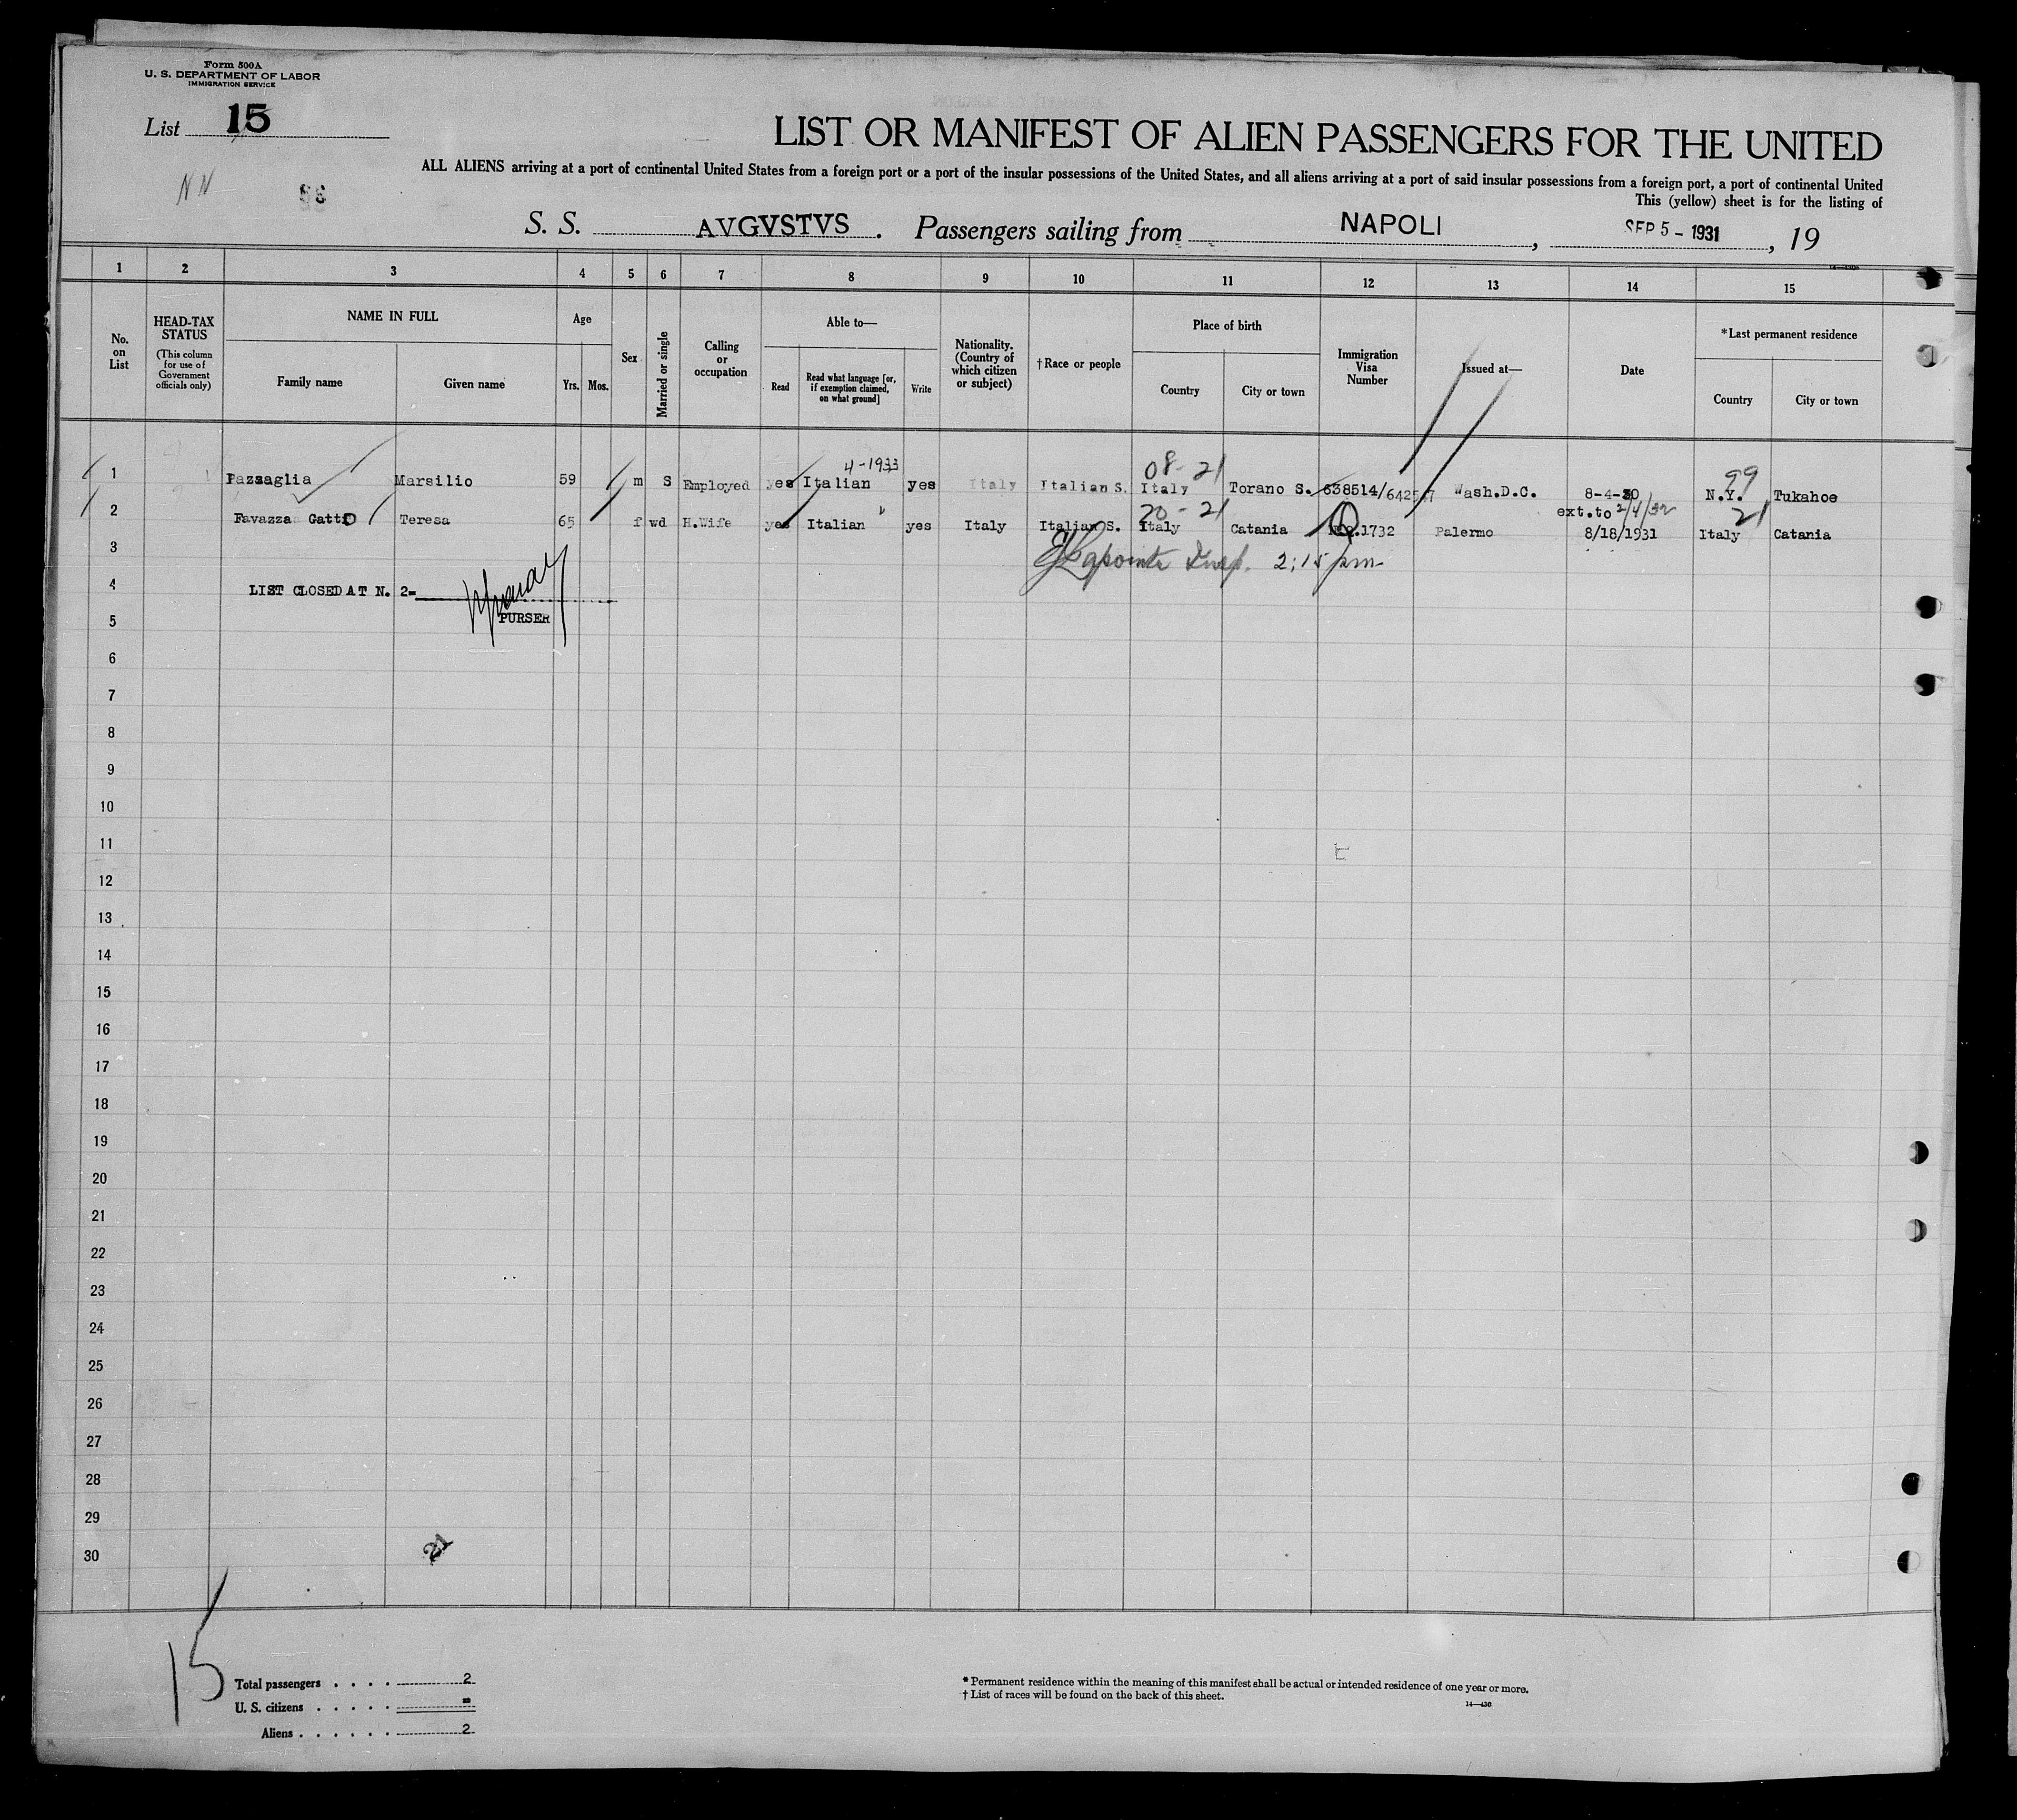 Form 500A
U. S. DEPARTMENT OF LABOR
IMMIGRATION SERVICE
List 15
LIST OR MANIFEST OF ALIEN PASSENGERS FOR THE UNITED
ALL ALIENS arriving at a port of continental United States from a foreign port or a port of the insular possessions of the United States, and all aliens arriving at a port of said insular possessions from a foreign port, a port of continental United
This (yellow) sheet is for the listing of
NN
S. S. AVGVSTVS . Passengers sailing from NAPOLI , SEP 5 - 1931 , 19
1 2 3 4 5 6 7 8 9 10 11 12 13 14 15
No. on List
HEAD-TAX STATUS
(This column for use of Government officials only)
NAME IN FULL
Family name
Given name
Age
Yrs. Mos.
Sex
Married or single
Calling or occupation
Able to—
Read
Read what language [or, if exemption claimed, on what ground]
Write
Nationality. (Country of which citizen or subject)
† Race or people
Place of birth
Country
City or town
Immigration Visa Number
Issued at—
Date
*Last permanent residence
Country
City or town
4-1933 08-21 99
1 Pazzaglia Marsilio 59 m S Employed yes Italian yes Italy Italian S. Italy Torano S. 638514/ Wash.D.C. 8-4-30 N.Y. Tukahoe
ext.to 2/4/32
20-21 21
2 Favazza Gatto Teresa 65 f wd H.Wife yes Italian yes Italy Italian S. Italy Catania 1732 Palermo 8/18/1931 Italy Catania
3 Lapointe Insp. 2:15 pm
4 LIST CLOSED AT N. 2=
PURSER
5
6
7
8
9
10
11
12
13
14
15
16
17
18
19
20
21
22
23
24
25
26
27
28
29
30
15
Total passengers . . . . 2
U. S. citizens . . . . . =
Aliens . . . . . . 2
* Permanent residence within the meaning of this manifest shall be actual or intended residence of one year or more.
† List of races will be found on the back of this sheet.
14—430